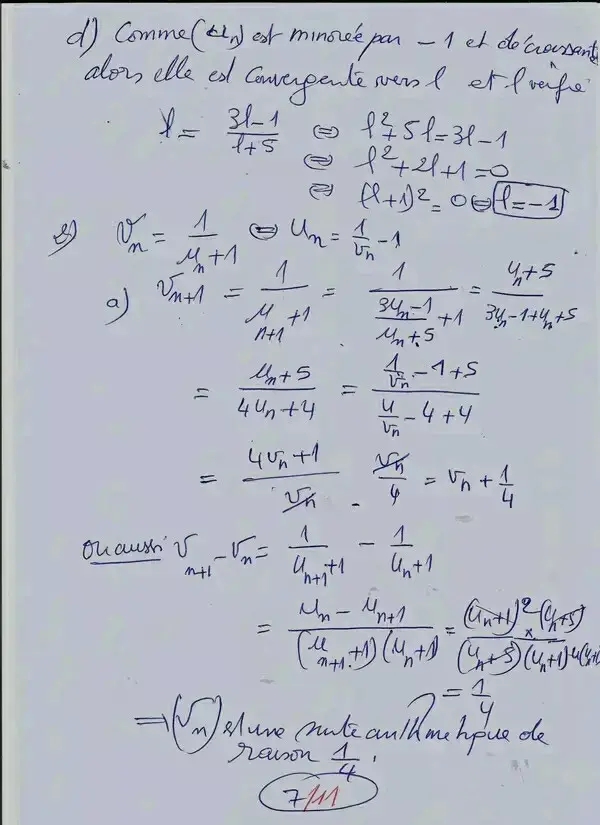 d) Comme (u_n) est minorée par -1 et décroissante
alors elle est convergente vers l et l vérifie
l = (3l-1)/(l+5) ⇔ l²+5l = 3l-1
⇔ l²+2l+1 = 0
⇔ (l+1)² = 0 ⇔ l = -1
2) v_n = 1/(u_n+1) ⇔ u_n = 1/v_n - 1
a) v_{n+1} = 1/(u_{n+1}+1) = 1/((3u_n-1)/(u_n+5) + 1) = (u_n+5)/(3u_n-1+u_n+5)
= (u_n+5)/(4u_n+4) = (1/v_n - 1+5)/(4/v_n - 4+4)
= (4v_n+1)/v_n . v_n/4 = v_n + 1/4
ou aussi v_{n+1} - v_n = 1/(u_{n+1}+1) - 1/(u_n+1)
= (u_n - u_{n+1})/((u_{n+1}+1)(u_n+1)) = (u_n+1)² × (u_n+5)/((u_n+5)(u_n+1)4(u_n+1
= 1/4
⇒ (v_n) est une suite arithmétique de
raison 1/4.
7/11